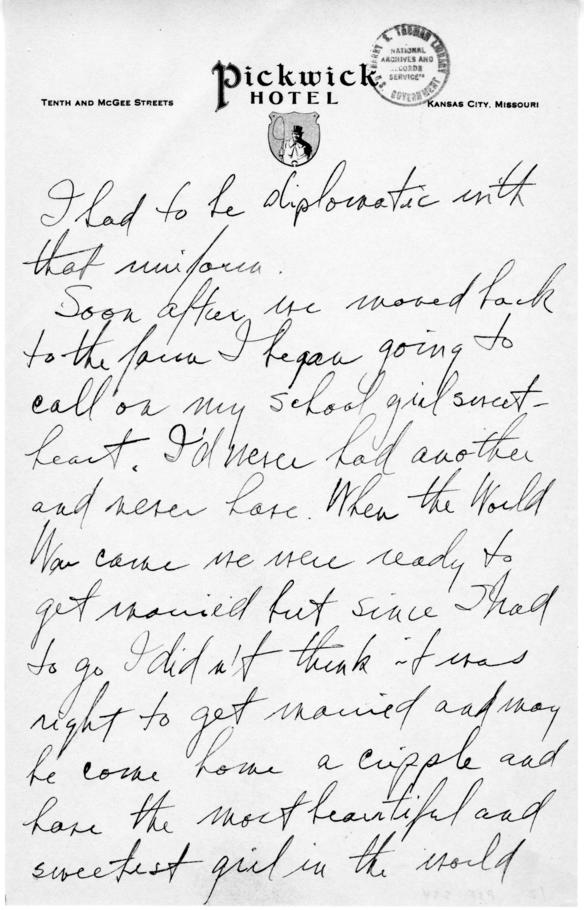 Pickwick
HOTEL
TENTH AND MCGEE STREETS
KANSAS CITY, MISSOURI
HARRY S. TRUMAN LIBRARY
NATIONAL
ARCHIVES AND
RECORDS
SERVICE
U.S. GOVERNMENT
I had to be diplomatic with
that uniform.
Soon after we moved back
to the farm I began going to
call on my school girl sweet-
heart. I'd never had another
and never have. When the World
War came we were ready to
get married but since I had
to go I didn't think it was
right to get married and may
be come home a cripple and
have the most beautiful and
sweetest girl in the world